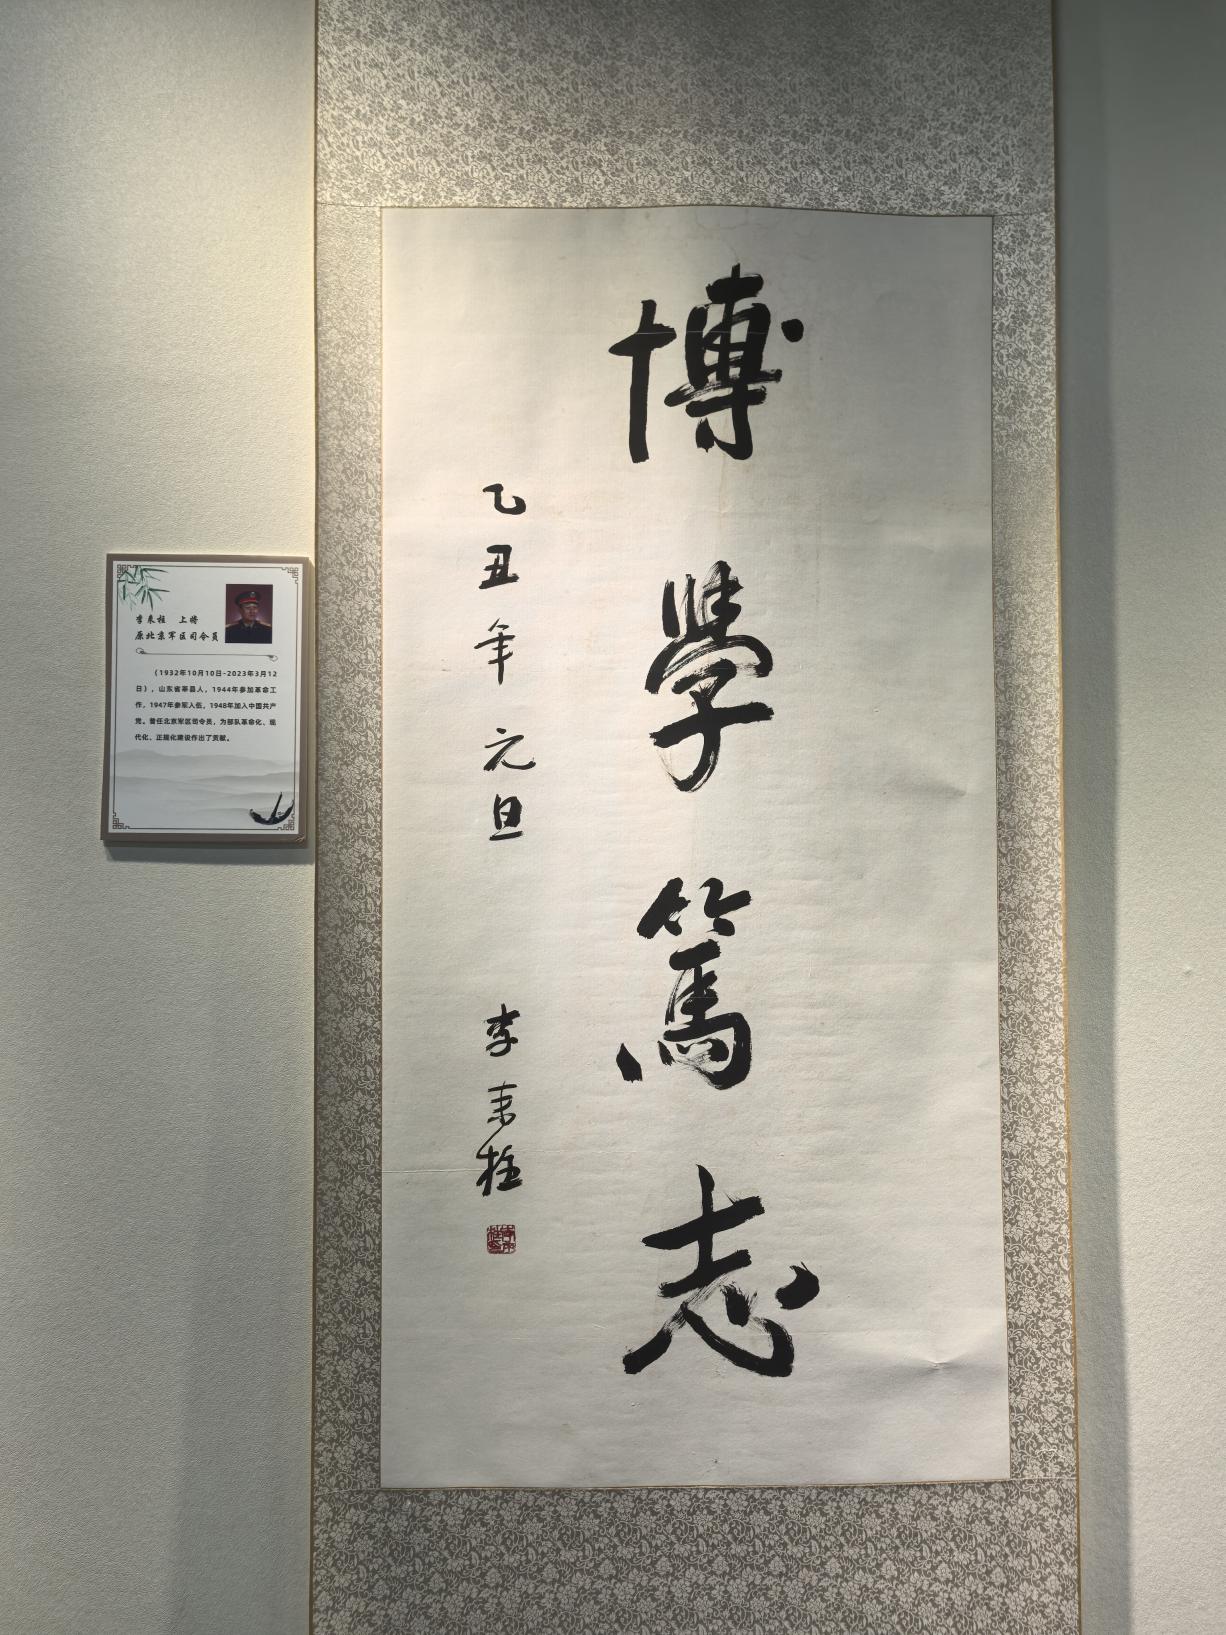 博學篤志
乙丑年元旦
李来柱
李来柱 上将
原北京军区司令员
（1932年10月10日-2023年3月12
日），山东省莘县人，1944年参加革命工
作，1947年参军入伍，1948年加入中国共产
党。曾任北京军区司令员，为部队革命化、现
代化、正规化建设作出了贡献。